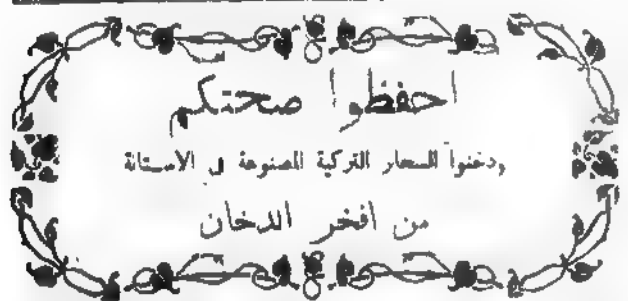 احفظوا صحتكم
ودخنوا السجار التركية المصنوعة في الاستانة
من افخر الدخان